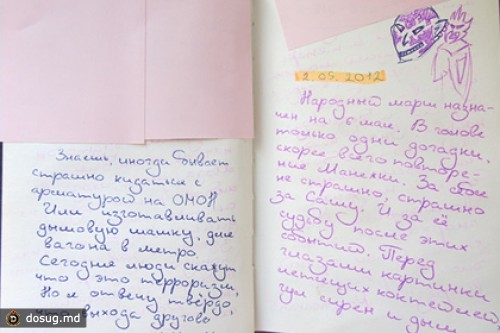 Знаешь, иногда бывает
страшно кидаться с
арматурой на ОМОН
Или изготавливать
дымовую шашку, для
вагона в метро.
Сегодня люди скажут
что это терроризм,
Но я отвечу твёрдо,
выхода другого
2.05.2012
Народный марш назна-
чен на 6 мая. В голове
только одни догадки,
скорее всего повторе-
ние Манежки. За себя
не страшно, страшно
за Сашу. И за её
судьбу после этих
событий. Перед
глазами картинки
летящих коктейлей,
гул сирен и дым
dosug.md